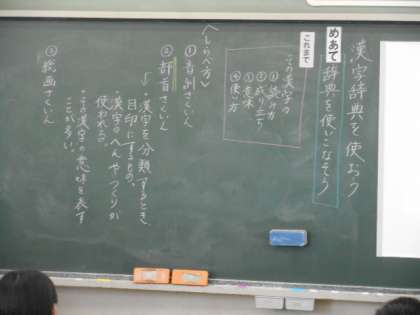 漢字辞典を使おう
めあて
辞典を使いこなそう
これまで
この漢字の
①読み方
②成り立ち
③意味
④使い方
〈しらべ方〉
①音訓さくいん
②部首さくいん
・漢字を分類するとき
目印にするもの。
・漢字のへんやつくりが
使われる。
・その漢字の意味を表す
ことが多い。
③総画さくいん